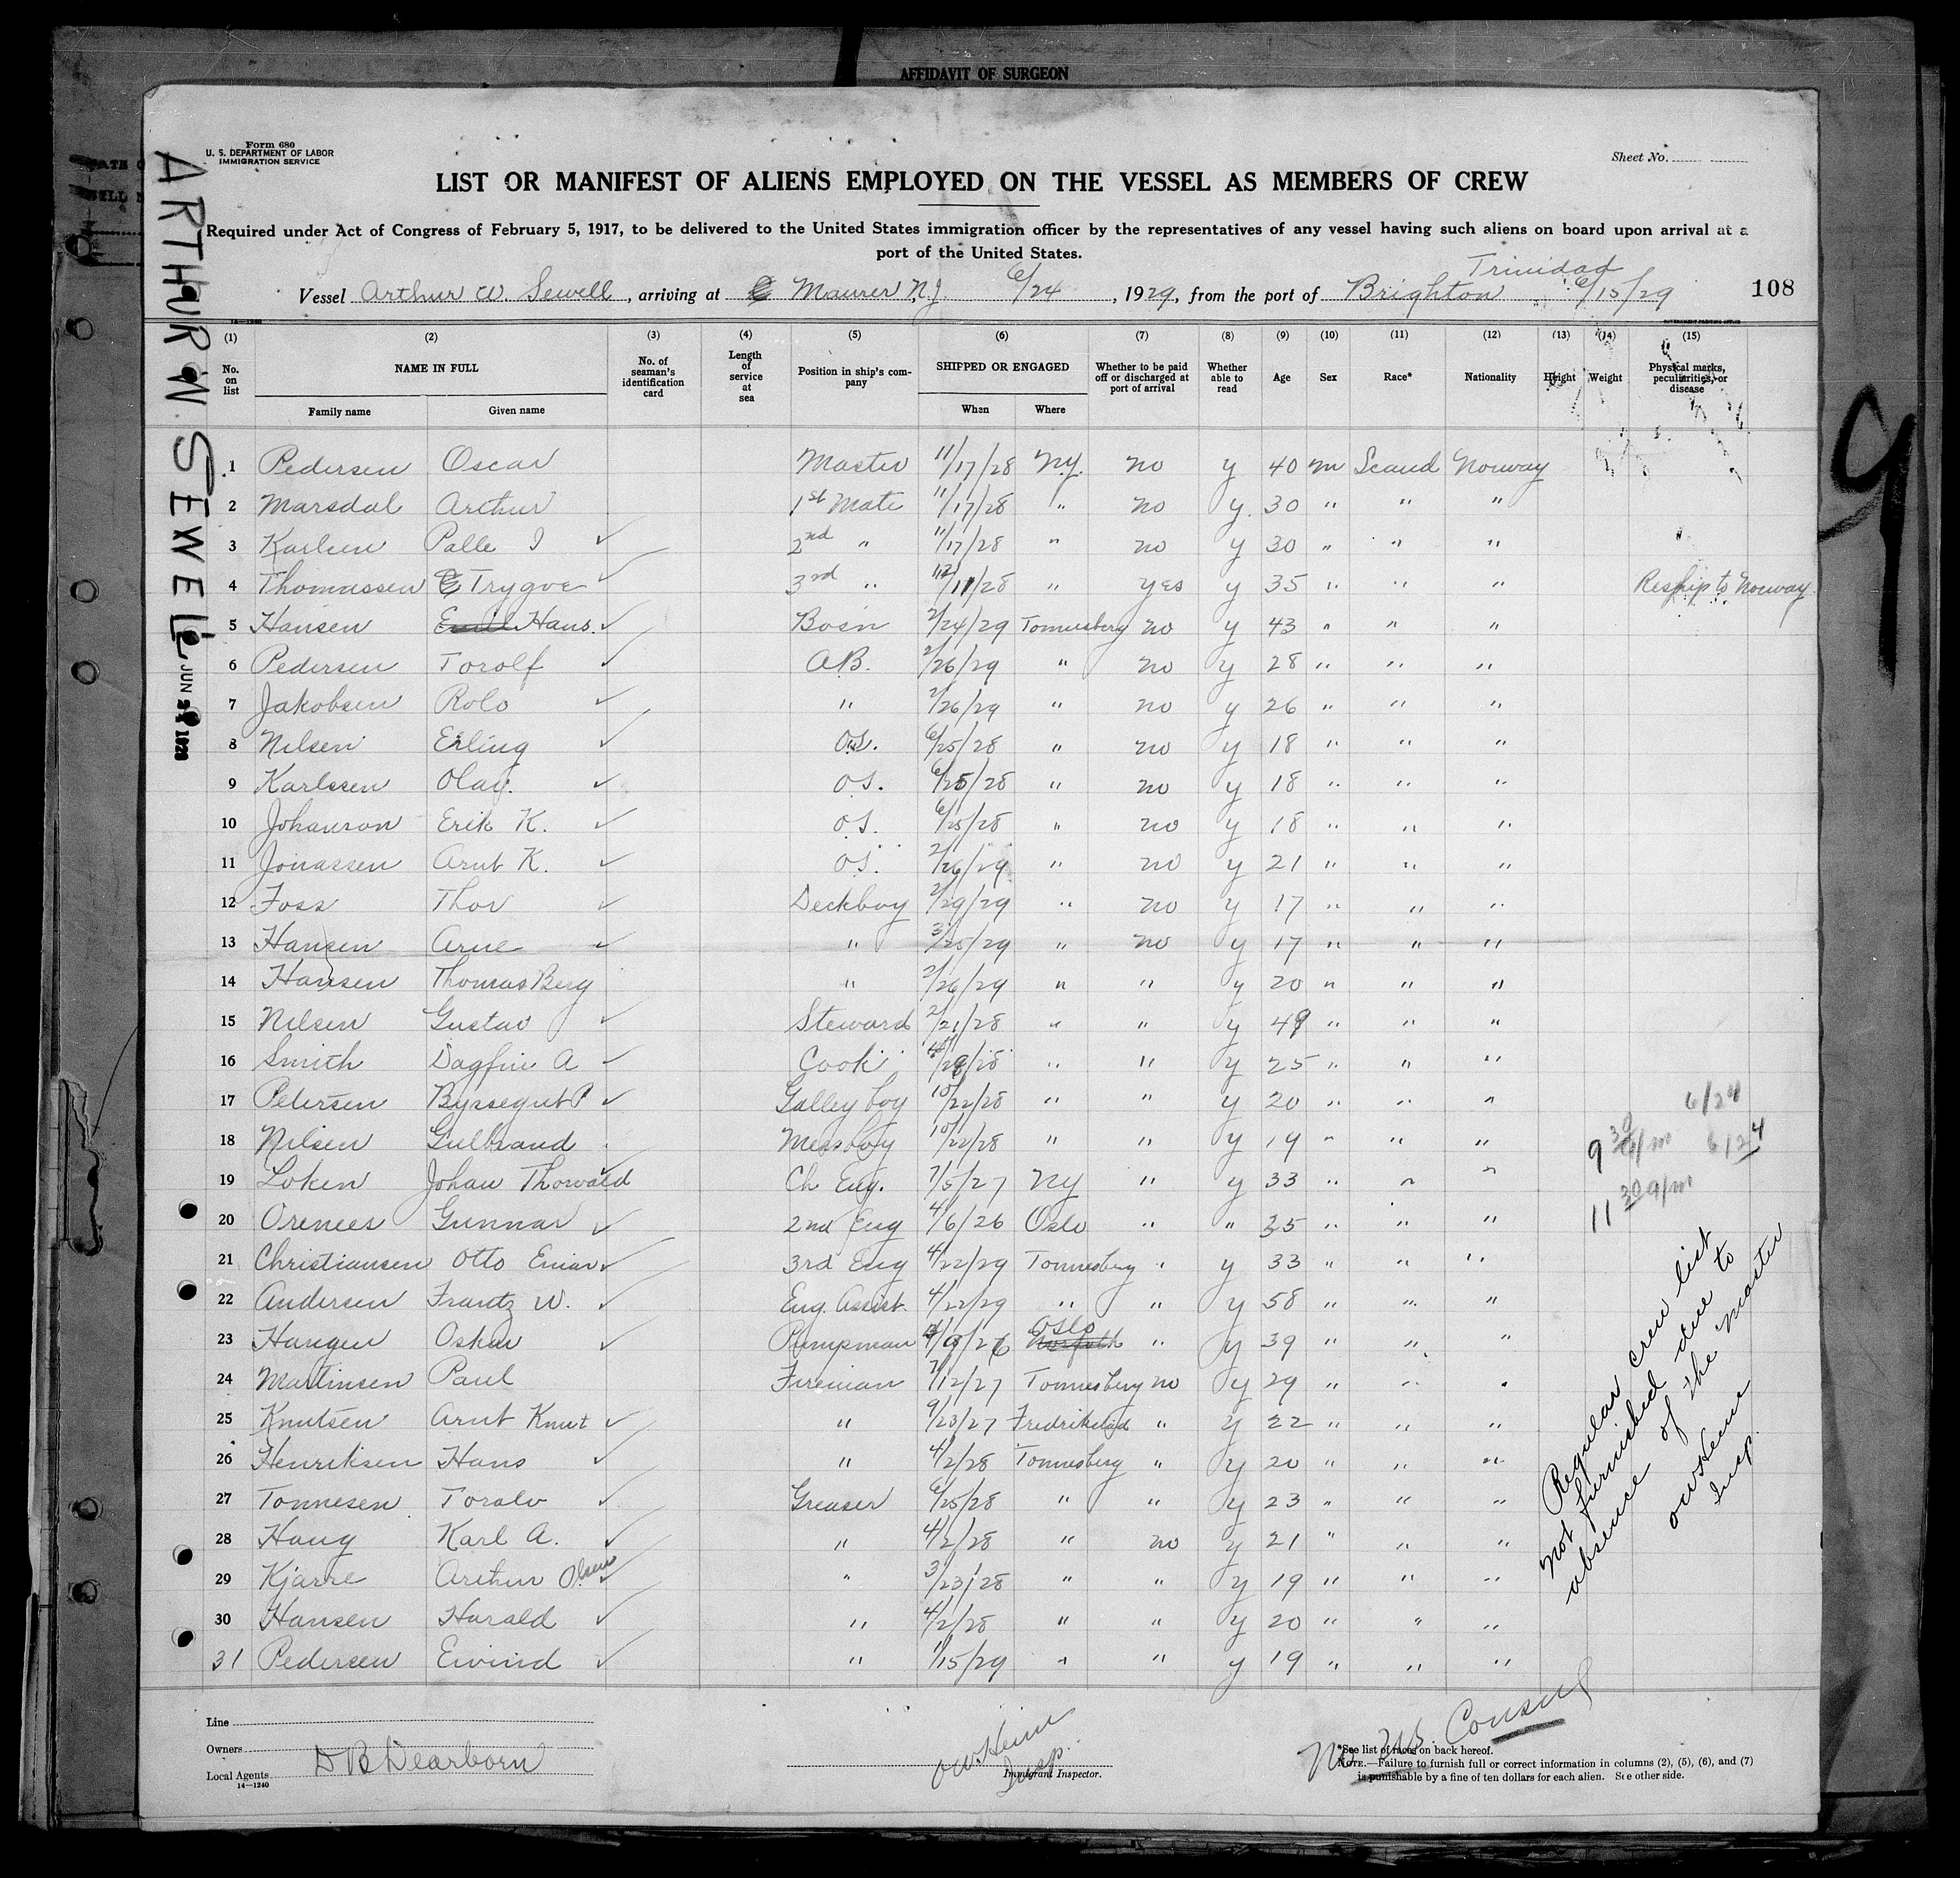 AFFIDAVIT OF SURGEON
Form 680
U. S. DEPARTMENT OF LABOR
IMMIGRATION SERVICE
Sheet No.
LIST OR MANIFEST OF ALIENS EMPLOYED ON THE VESSEL AS MEMBERS OF CREW
Required under Act of Congress of February 5, 1917, to be delivered to the United States immigration officer by the representatives of any vessel having such aliens on board upon arrival at a
port of the United States.
Trinidad
Vessel Arthur W. Sewell, arriving at Maurer N.J. 6/24, 1929, from the port of Brighton 6/15/29 108
ARTHUR W SEWELL
JUN 1929
9
14-1240
GOVERNMENT PRINTING OFFICE
(1) (2) (3) (4) (5) (6) (7) (8) (9) (10) (11) (12) (13) (14) (15)
No. on list NAME IN FULL No. of seaman's identification card Length of service at sea Position in ship's company SHIPPED OR ENGAGED Whether to be paid off or discharged at port of arrival Whether able to read Age Sex Race* Nationality Height Weight Physical marks, peculiarities, or disease
Family name Given name When Where
1 Pedersen Oscar Master 11/17/28 N.Y. no y 40 m Scand Norway
2 Marsdal Arthur 1st Mate 11/17/28 " no y 30 " " "
3 Karlsen Palle I 2nd " 11/17/28 " no y 30 " " "
4 Thomassen Trygve 3rd " 11/28 " yes y 35 " " " Reship to Norway
5 Hansen Hans Bosn 2/24/29 Tonnesberg no y 43 " " "
6 Pedersen Torolf A.B. 2/26/29 " no y 28 " " "
7 Jakobsen Rolo " 2/26/29 " no y 26 " " "
8 Nilsen Erling O.S. 6/25/28 " no y 18 " " "
9 Karlssen Olav O.S. 6/25/28 " no y 18 " " "
10 Johanson Erik K. O.S. 6/25/28 " no y 18 " " "
11 Jonassen Arnt K. O.S. 2/26/29 " no y 21 " " "
12 Foss Thor Deckboy 2/29/29 " no y 17 " " "
13 Hansen Arne " 3/25/29 " no y 17 " " "
14 Hansen Thomas Berg " 2/26/29 " " y 20 " " "
15 Nilsen Gustav Steward 2/21/28 " " y 49 " " "
16 Smith Dagfin A Cook /28 " " y 25 " " "
17 Petersen P Galley boy 10/22/28 " " y 20 " " "
18 Nilsen Gulbrand Messboy 10/22/28 " " y 19 " " "
19 Loken Johan Thorvald Ch Eng. 7/5/27 NY " y 33 " " "
20 Orenees Gunnar 2nd Eng 4/6/26 Oslo " " 35 " " "
21 Christiansen Otto Einar 3rd Eng 4/22/29 Tonnesberg " y 33 " " "
22 Andersen Frantz W. Eng. Assist. 4/22/29 " " y 58 " " "
23 Haugen Oskar Pumpman /26 Oslo " y 39 " " "
24 Martinsen Paul Fireman 7/12/27 Tonnesberg no y 29 " " "
25 Knutsen Arnt Knut " 9/23/27 Fredrikstad " y 22 " " "
26 Henriksen Hans " 4/2/28 Tonnesberg " y 20 " " "
27 Tonnesen Toralv Greaser 6/25/28 " " y 23 " " "
28 Haug Karl A. " 4/2/28 " no y 21 " " "
29 Kjarre Arthur Olsen " 3/23/28 " " y 19 " " "
30 Hansen Harald " 4/2/28 " " y 20 " " "
31 Pedersen Eivind " 1/15/29 " " y 19 " " "
6/24
9 30 a/m 6/24
11 30 a/m
Regular crew list
not furnished due to
absence of the Master
OW Heine
Insp.
Line
Owners
Local Agents D B Dearborn
14-1240
OW Heine
Insp.
Immigrant Inspector.
No Consul
*See list of races on back hereof.
NOTE.—Failure to furnish full or correct information in columns (2), (5), (6), and (7)
is punishable by a fine of ten dollars for each alien. See other side.